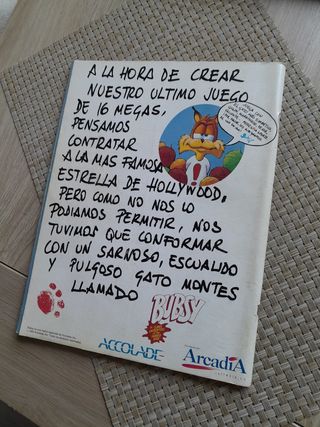 A LA HORA DE CREAR
NUESTRO ULTIMO JUEGO
DE 16 MEGAS,
PENSAMOS
CONTRATAR
A LA MAS FAMOSA
ESTRELLA DE HOLLYWOOD,
PERO COMO NO NOS LO
PODIAMOS PERMITIR, NOS
TUVIMOS QUE CONFORMAR
CON UN SARNOSO, ESCUALIDO
Y PULGOSO GATO MONTES
LLAMADO
BUBSY
ACCOLADE
ArcadiA